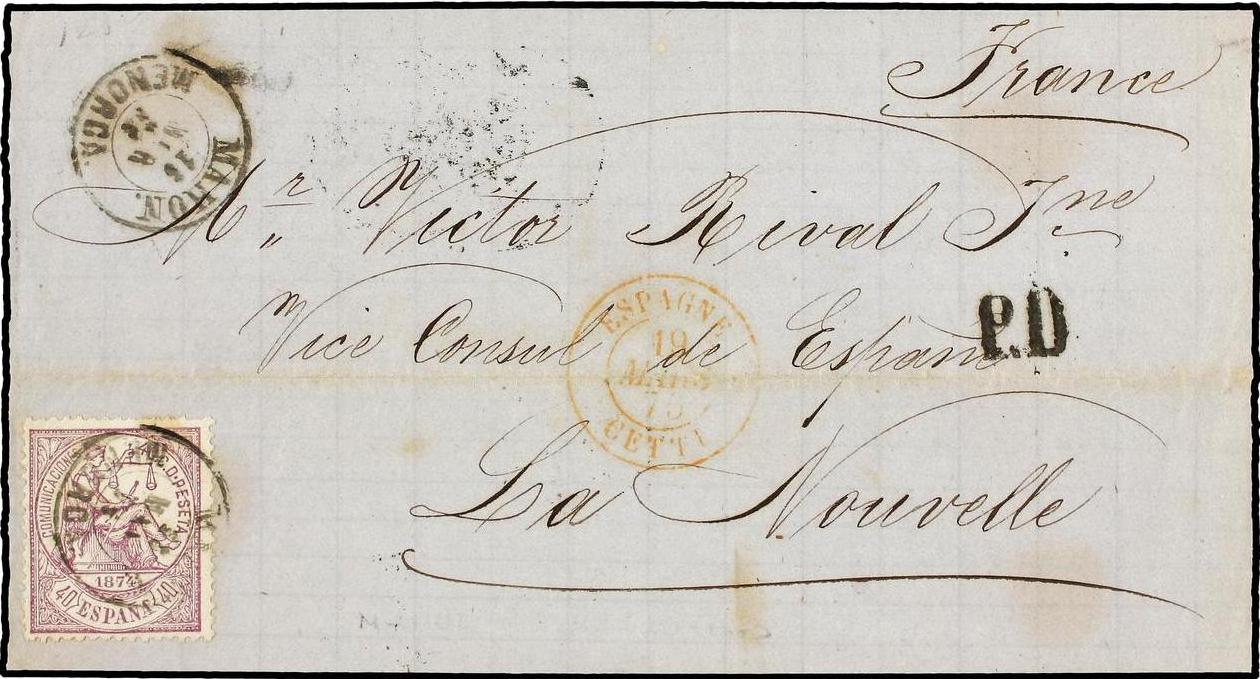 France
MAHON.
MENORCA
Mr. Victor Rival Jne
Vice Consul de España
P.D
ESPAGNE
19
MARS
75
CETTE
La Nouvelle
COMUNICACIONES
D.PESETA
1874
40 ESPAÑA 40